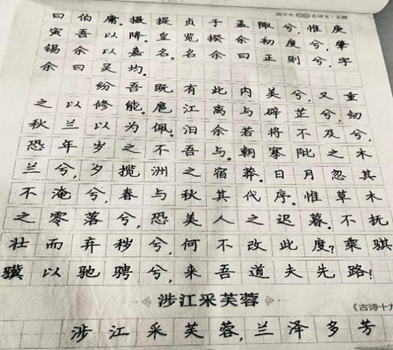 高中生 古诗文·正楷
曰伯庸。摄提贞于孟陬兮，惟庚
寅吾以降。皇览揆余初度兮，肇
锡余以嘉名。名余曰正则兮，字
余曰灵均。
纷吾既有此内美兮，又重
之以修能。扈江离与辟芷兮，纫
秋兰以为佩。汩余若将不及兮，
恐年岁之不吾与。朝搴阰之木
兰兮，夕揽洲之宿莽。日月忽其
不淹兮，春与秋其代序。惟草木
之零落兮，恐美人之迟暮。不抚
壮而弃秽兮，何不改此度？乘骐
骥以驰骋兮，来吾道夫先路！
涉江采芙蓉
《古诗十九
涉江采芙蓉，兰泽多芳